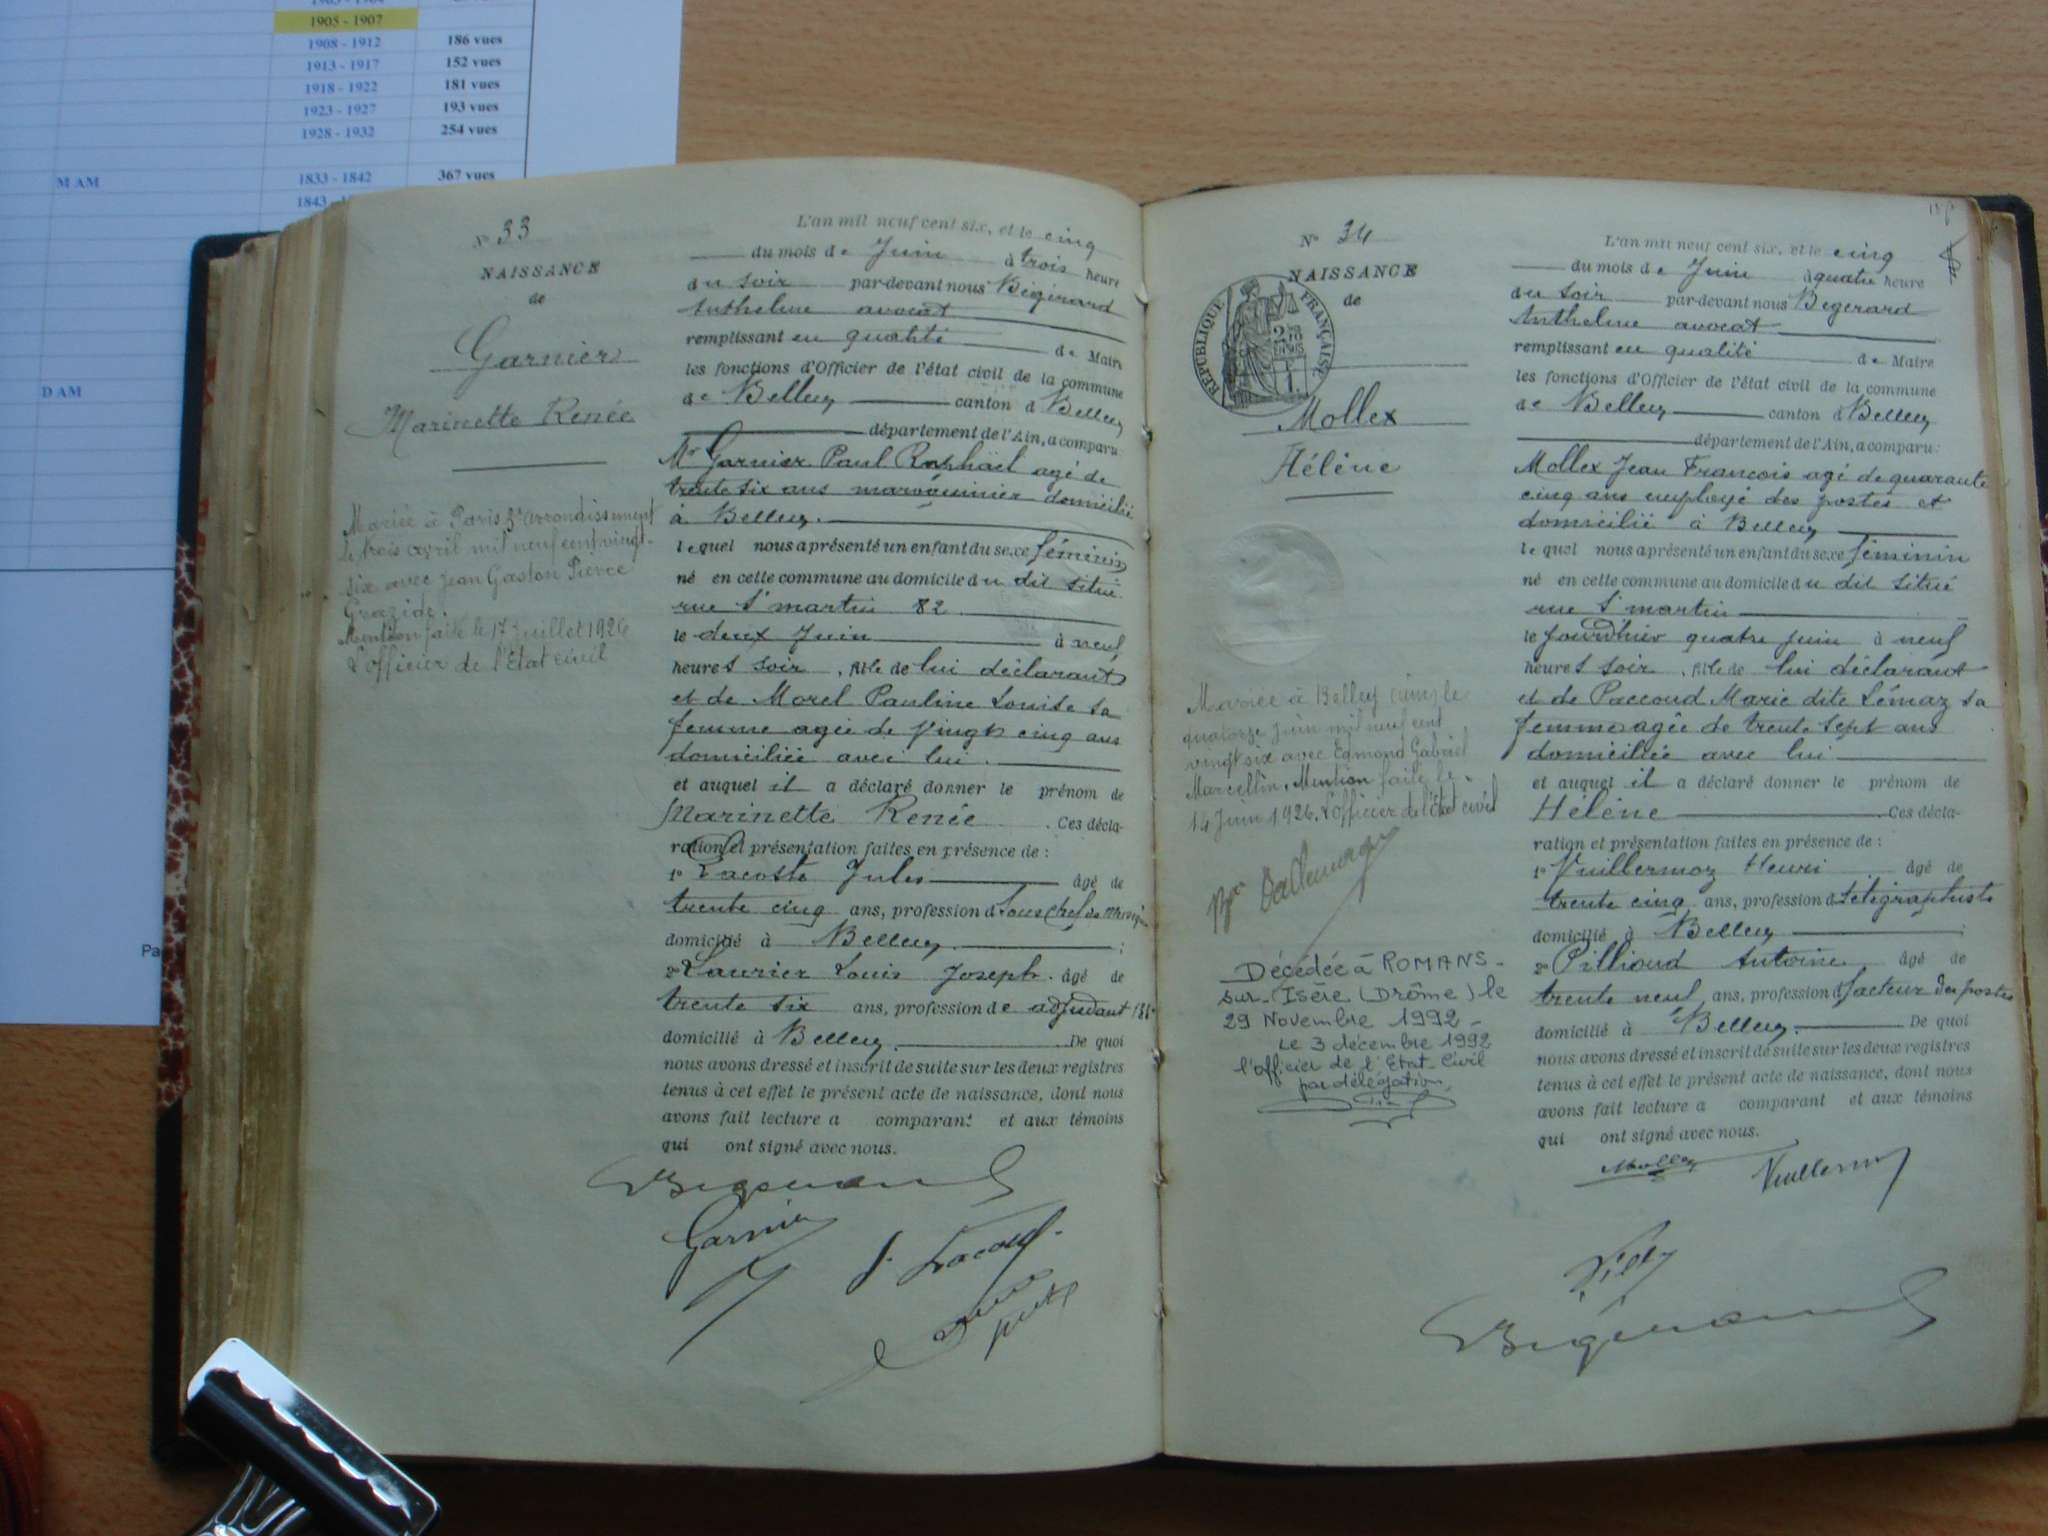 1905 - 1907
1908 - 1912 186 vues
1913 - 1917 152 vues
1918 - 1922 181 vues
1923 - 1927 193 vues
1928 - 1932 254 vues
M AM 1833 - 1842 367 vues
1843 -
D AM
Pa
N° 33
NAISSANCE
de
Garnier
Marinette Renée
Mariée à Paris arrondissement
le trois avril mil neuf cent vingt-
six avec Jean Gaston Pierre
Grazide.
Mention faite le 17 Juillet 1926
L'officier de l'Etat civil
L'an mil neuf cent six, et le cinq
du mois de Juin à trois heure
du soir par-devant nous Bégérard
Anthelme avocat
remplissant en qualité de Maire
les fonctions d'Officier de l'état civil de la commune
de Belley canton d Belley
département de l'Ain, a comparu:
Mr Garnier Paul Raphaël agé de
trente six ans maroquinier domicilié
à Belley.
lequel nous a présenté un enfant du sexe féminin
né en cette commune au domicile du dit situé
rue St martin 82
le deux Juin à neuf
heures soir, fille de lui déclarant
et de Morel Pauline Louise sa
femme agée de Vingt cinq ans
domiciliée avec lui.
et auquel il a déclaré donner le prénom de
Marinette Renée. Ces décla-
ration et présentation faites en présence de :
1° Lacoste Jules âgé de
trente cinq ans, profession d Sous chef de
domicilié à Belley ;
2° Laurier Louis Joseph. âgé de
trente six ans, profession de adjudant
domicilié à Belley. De quoi
nous avons dressé et inscrit de suite sur les deux registres
tenus à cet effet le présent acte de naissance, dont nous
avons fait lecture a comparant et aux témoins
qui ont signé avec nous.
Garnier
N° 34
NAISSANCE
de
RÉPUBLIQUE FRANÇAISE
Mollex
Hélène
Mariée à Belley le
quatorze Juin mil neuf cent
vingt six avec Edmond Gabriel
Marcellin. Mention faite le
14 Juin 1926. L'officier de l'état civil
Décédée à ROMANS-
sur-Isère (Drôme) le
29 Novembre 1992 -
Le 3 décembre 1992
l'officier de l'Etat-Civil
par délégation,
L'an mil neuf cent six, et le cinq
du mois de Juin à quatre heure
du soir par-devant nous Bégérard
Anthelme avocat
remplissant en qualité de Maire
les fonctions d'Officier de l'état civil de la commune
de Belley canton d Belley
département de l'Ain, a comparu:
Mollex Jean François agé de quarante
cinq ans employé des postes et
domicilié à Belley
lequel nous a présenté un enfant du sexe féminin
né en cette commune au domicile du dit situé
rue St martin
le jourd'hier quatre juin à neuf
heures soir, fille de lui déclarant
et de Paccoud Marie dite Lémaz sa
femme agée de trente sept ans
domiciliée avec lui
et auquel il a déclaré donner le prénom de
Hélène Ces décla-
ration et présentation faites en présence de :
1° Vuillermoz Henri âgé de
trente cinq ans, profession d télégraphiste
domicilié à Belley ;
2° Pillioud Antoine âgé de
trente neuf ans, profession d facteur des postes
domicilié à Belley. De quoi
nous avons dressé et inscrit de suite sur les deux registres
tenus à cet effet le présent acte de naissance, dont nous
avons fait lecture a comparant et aux témoins
qui ont signé avec nous.